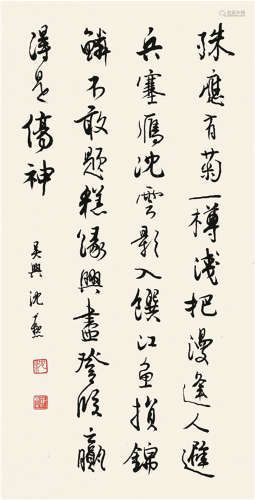 殊應有菊一樽淺把漫逢人避
兵塞鴈沈雲影入饌江魚損錦
鱗不敢題糕緣興盡登臨贏
得是傷神
吳興沈尹默